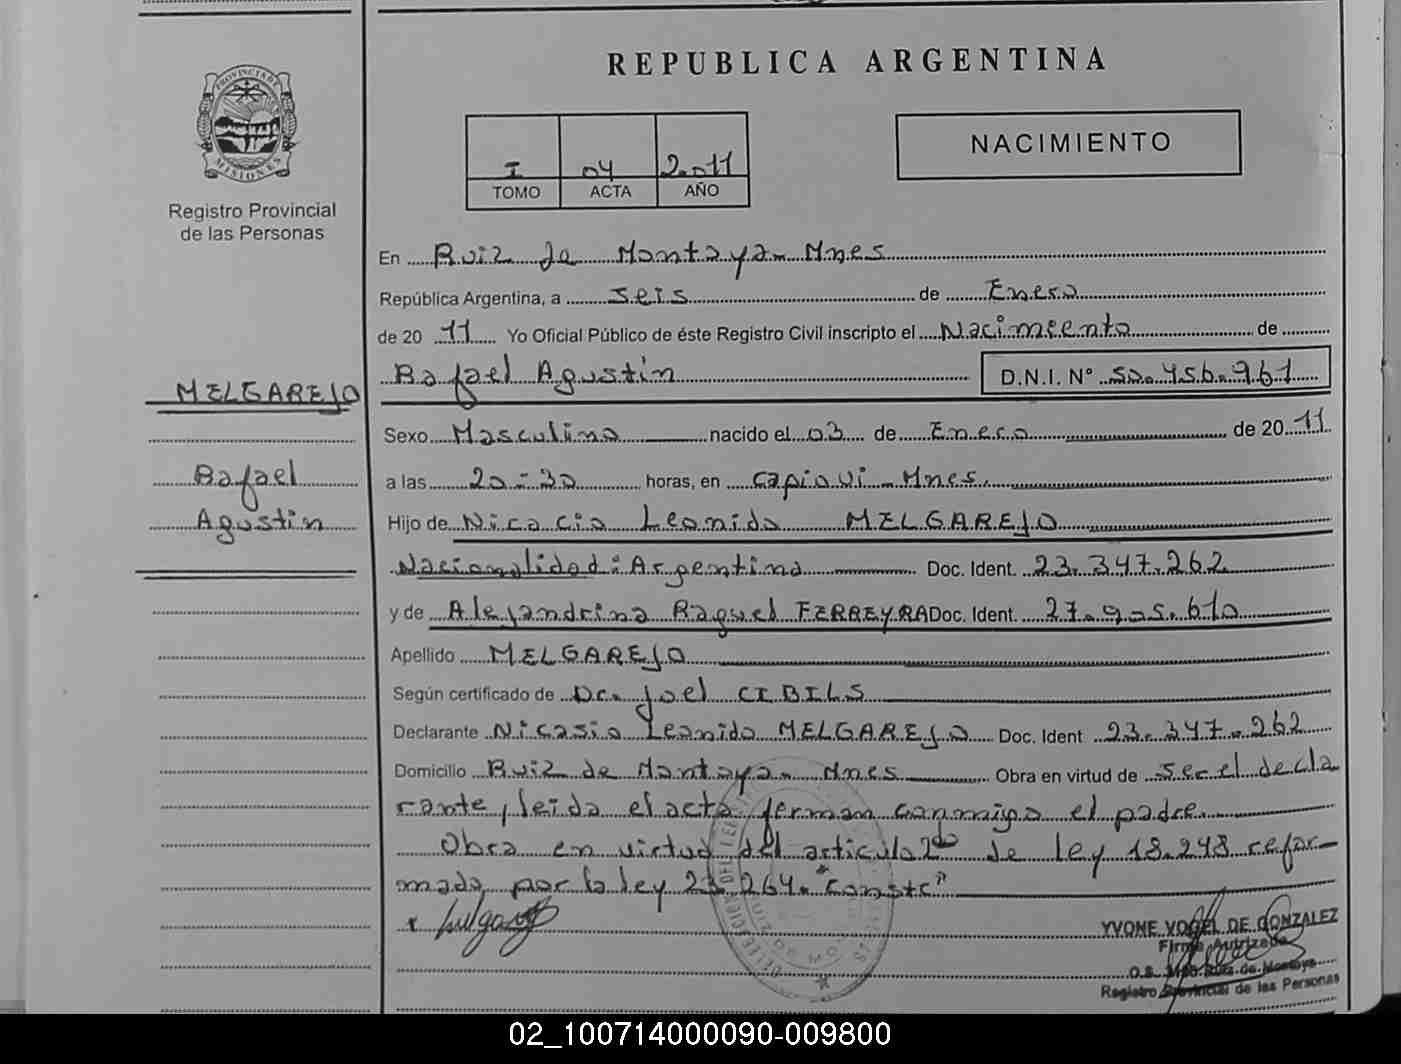 REPUBLICA ARGENTINA
PROVINCIA DE
MISIONES
Registro Provincial
de las Personas
I 04 2.011
TOMO ACTA AÑO
NACIMIENTO
En Ruiz de Montoya - Mnes
República Argentina, a seis de Enero
de 20 11 Yo Oficial Público de éste Registro Civil inscripto el Nacimiento de
Rafael Agustin D.N.I. Nº 50.456.961
MELGAREJO
Rafael
Agustin
Sexo Masculino nacido el 03 de Enero de 20 11
a las 20:30 horas, en Capiovi - Mnes.
Hijo de Nicacio Leonido MELGAREJO
Nacionalidad: Argentina Doc. Ident. 23.347.262
y de Alejandrina Raquel FERREYRA Doc. Ident. 27.905.610
Apellido MELGAREJO
Según certificado de Dr. Joel CIBILS
Declarante Nicasio Leonido MELGAREJO Doc. Ident 23.347.262
Domicilio Ruiz de Montoya - Mnes Obra en virtud de ser el decla
rante, leida el acta ferman conmigo el padre.
Obra en virtud del articulo 2do de ley 18.248 refor-
mada por la ley 23.264. "Conste"
YVONE VOGEL DE GONZALEZ
Firma Autrizada
Ruiz de Montoya
Registro Provincial de las Personas
02_100714000090-009800